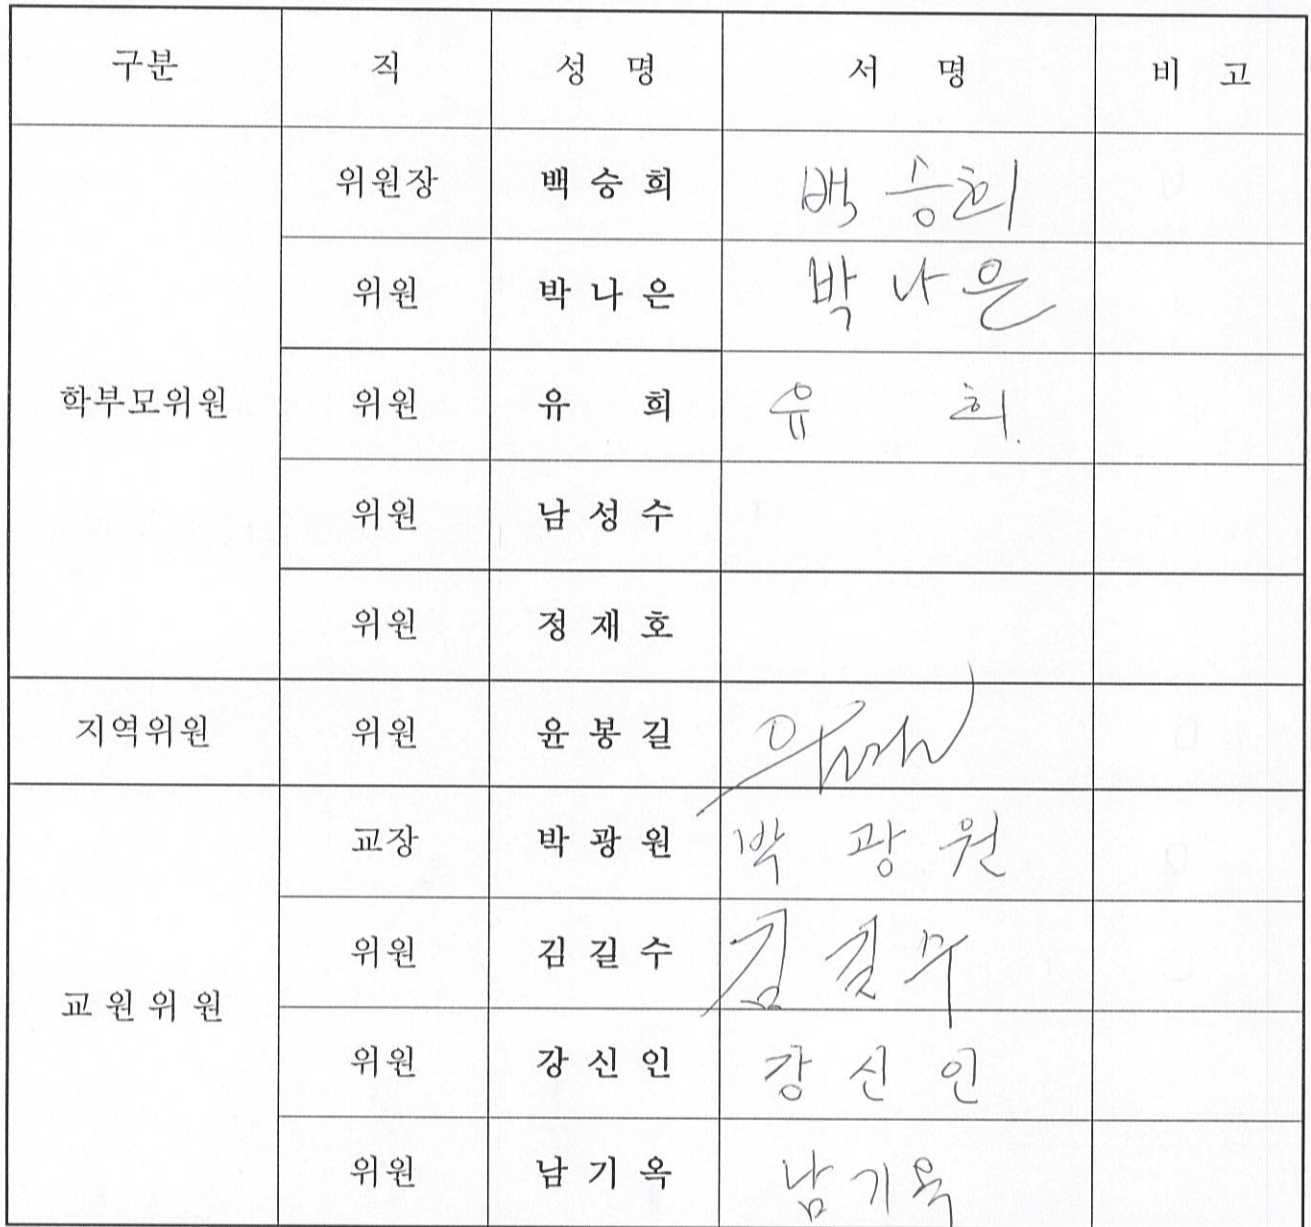 구분 직 성 명 서 명 비 고
위원장 백 승 희 백 승 희
위원 박 나 은 박 나 은
학부모위원 위원 유 희 유 희.
위원 남 성 수
위원 정 재 호
지역위원 위원 윤 봉 길
교장 박 광 원 박 광 원
위원 김 길 수 김 길 수
교 원 위 원
위원 강 신 인 강 신 인
위원 남 기 옥 남 기 옥